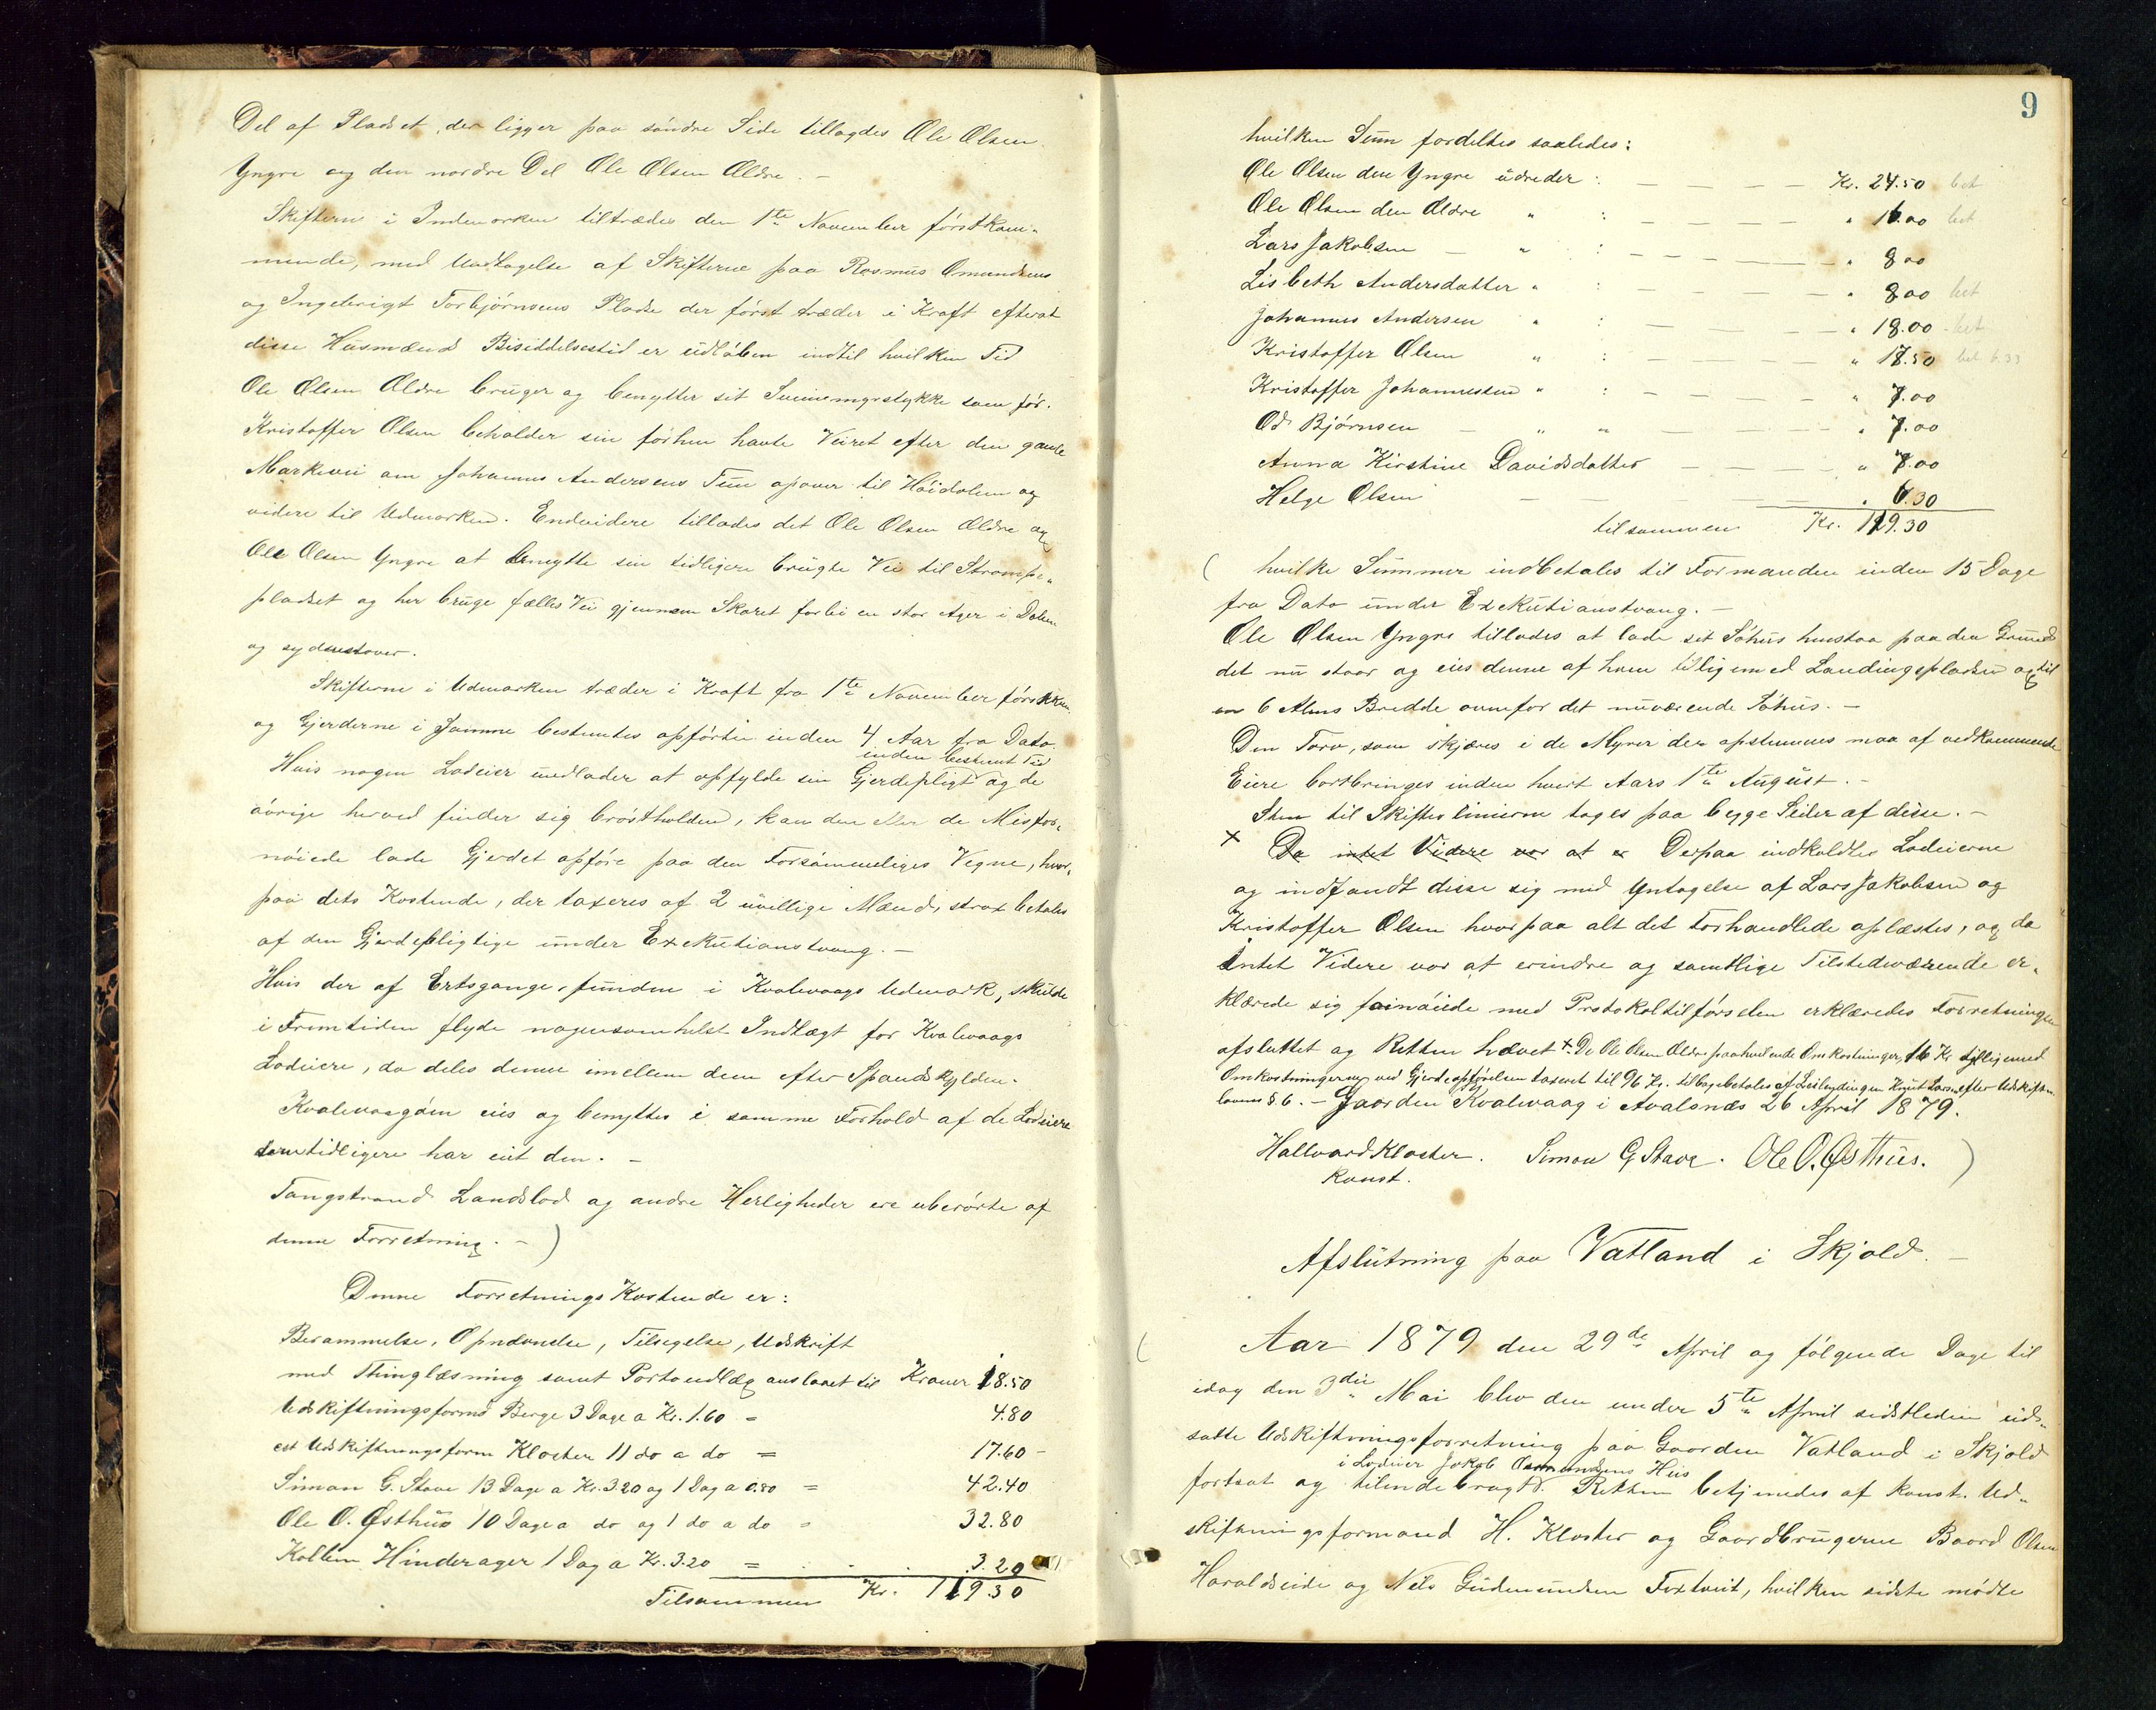 Del af Pladset, der ligger paa søndre Side tillagdes Ole Olsen
Yngre og den nordre Del Ole Olsen Ældre. –
Skifterne i Indmarken tiltrædes den 1te November førstkom-
mende, med Undtagelse af Skifterne paa Rasmus Omundsens
og Ingebrigt Torbjørnsens Pladse der først træder i Kraft efterat
disse Husmænds Besiddelsestid er udløben indtil hvilken Tid
Ole Olsen Ældre bruger og benytter sit myrstykke som før.
Kristoffer Olsen beholder sin førhen havte Veiret efter den gamle
Markvei om Johannes Andersens Tun opover til Høidalen og
videre til Udmarken. Endvidere tillades det Ole Olsen Ældre og
Ole Olsen Yngre at benytte sin tidligere brugte Vei til Strompe-
pladset og her bruge fælles Vei gjennem Skaret forbi en stor Ager i Dalen
og
Skifterne i Udmarken træder i Kraft fra 1te November førstkom.
og Gjerderne i Samme bestemtes opførte inden 4 Aar fra Dato.
inden bestemt Tid
Hvis nogen Lodeier undlader at opfylde sin Gjerdepligt og de
øvrige herved finder sig brøstholden, kan den eller de Misfor-
nøiede lade Gjerdet opføre paa den Forsømmeliges Vegne, hvor-
paa dets Kostende, der taxeres af 2 uvillige Mænd, strax betales
af den Gjerdepligtige under Exekutionstvang. –
Hvis der af Ertsgange, funden i Kvalevaags Udmark, skulde
i Fremtiden flyde nogensomhelst Indtægt for Kvalevaags
Lodeiere, da deles denne imellem dem efter Skylden.
Kvalevaagøen eies og benyttes i samme Forhold af de Lodeiere
som tidligere har eiet den. –
Tangstrand Landslod og andre Herligheder ere uberørte af
denne Forretning. – )
Denne Forretnings Kostende er:
Berammelse, Opnævnelse, Tilsigelse, Udskrift
med Thinglæsning samt Portoudlæg anslaaet til Kroner 18.50
Udskiftningsform Berge 3 Dage a Kr. 1.60 = 4.80
cst Udskiftningsform Kloster 11 do a do = 17.60 -
Simon G. Stave 13 Dage a Kr. 3.20 og 1 Dag a 0.80 = 42.40
Ole O. Østhus 10 Dage a do og 1 do a do = 32.80
Kolben Hinderager 1 Dag a Kr. 3.20 = 3.20
Tilsammen Kr. 119.30
9
hvilken Sum fordeltes saaledes:
Ole Olsen den Yngre udreder : – – – – Kr. 24.50 bet
Ole Olsen den Ældre " : – – – – " 16.00 bet
Lars Jakobsen – " : – – – – " 8 00
Lisbeth Andersdatter " : – – – – " 8 00 bet
Johannes Andersen " : – – – – " 18.00 bet
Kristoffer Olsen " : – – – – " 18.50 bet 6.33
Kristoffer Johannessen " : – – – – " 7.00
Od. Bjørnsen – " " – – – – " 7.00
Anna Kirstine Davidsdatter – – – – " 7.00
Helge Olsen – – – – " 6.30
tilsammen Kr. 119.30
( hvilke Summer indbetales til Formanden inden 15 Dage
fra Dato under Exekutionstvang. –
Ole Olsen Yngre tillades at lade sit Søhus henstaa paa den Grund
det nu staar og eies denne af ham tilligemed Landingspladsen og til
en 6 Alens Bredde ovenfor det nuværende Søhus. –
Den Torv, som skjæres i de Myrer der maa af vedkommende
Eiere bortbringes inden hvert Aars 1te August. –
Sten til Skifteslinierne tages paa begge Sider af disse. –
x Da intet Videre var at er Derpaa indkaldtes Lodeierne
og indfandt disse sig med Untagelse af Lars Jakobsen og
Kristoffer Olsen hvorpaa alt det forhandlede oplæstes, og da
Intet Videre var at erindre og samtlige Tilstedeværende er-
klærede sig fornøiede med Protokoltilførselen erklæredes Forretningen
afsluttet og Retten hævet x. De Ole Olsen Ældre paahvilende Omkostninger, 16 Kr tilligemed
Omkostningerne ved Gjerdeopførelsen taxeret til 96 Kr. tilbagebetales af Leilændingen Knut Larsen efter Udskiftn
lovens § 6. – Gaarden Kvalevaag i Avalsnæs 26 April 1879.
Hallvard Kloster. Simon G Stave. Ole O. Østhus. )
Konst.
Afslutning paa Vatland i Skjold. –
( Aar 1879 den 29de April og følgende Dage til
idag den 3die Mai blev den under 5te April sidstleden ud-
satte Udskiftningsforretning paa Gaarden Vatland i Skjold
i Lodeier Jakob Osmundsens Hus
fortsat og tilendebragt. Retten betjenedes af konst. Ud-
skiftningsformand H. Kloster og Gaardbrugerne Baard Olsen
Haraldseide og Nils Gudmundsen Fostveit, hvilken sidste mødte